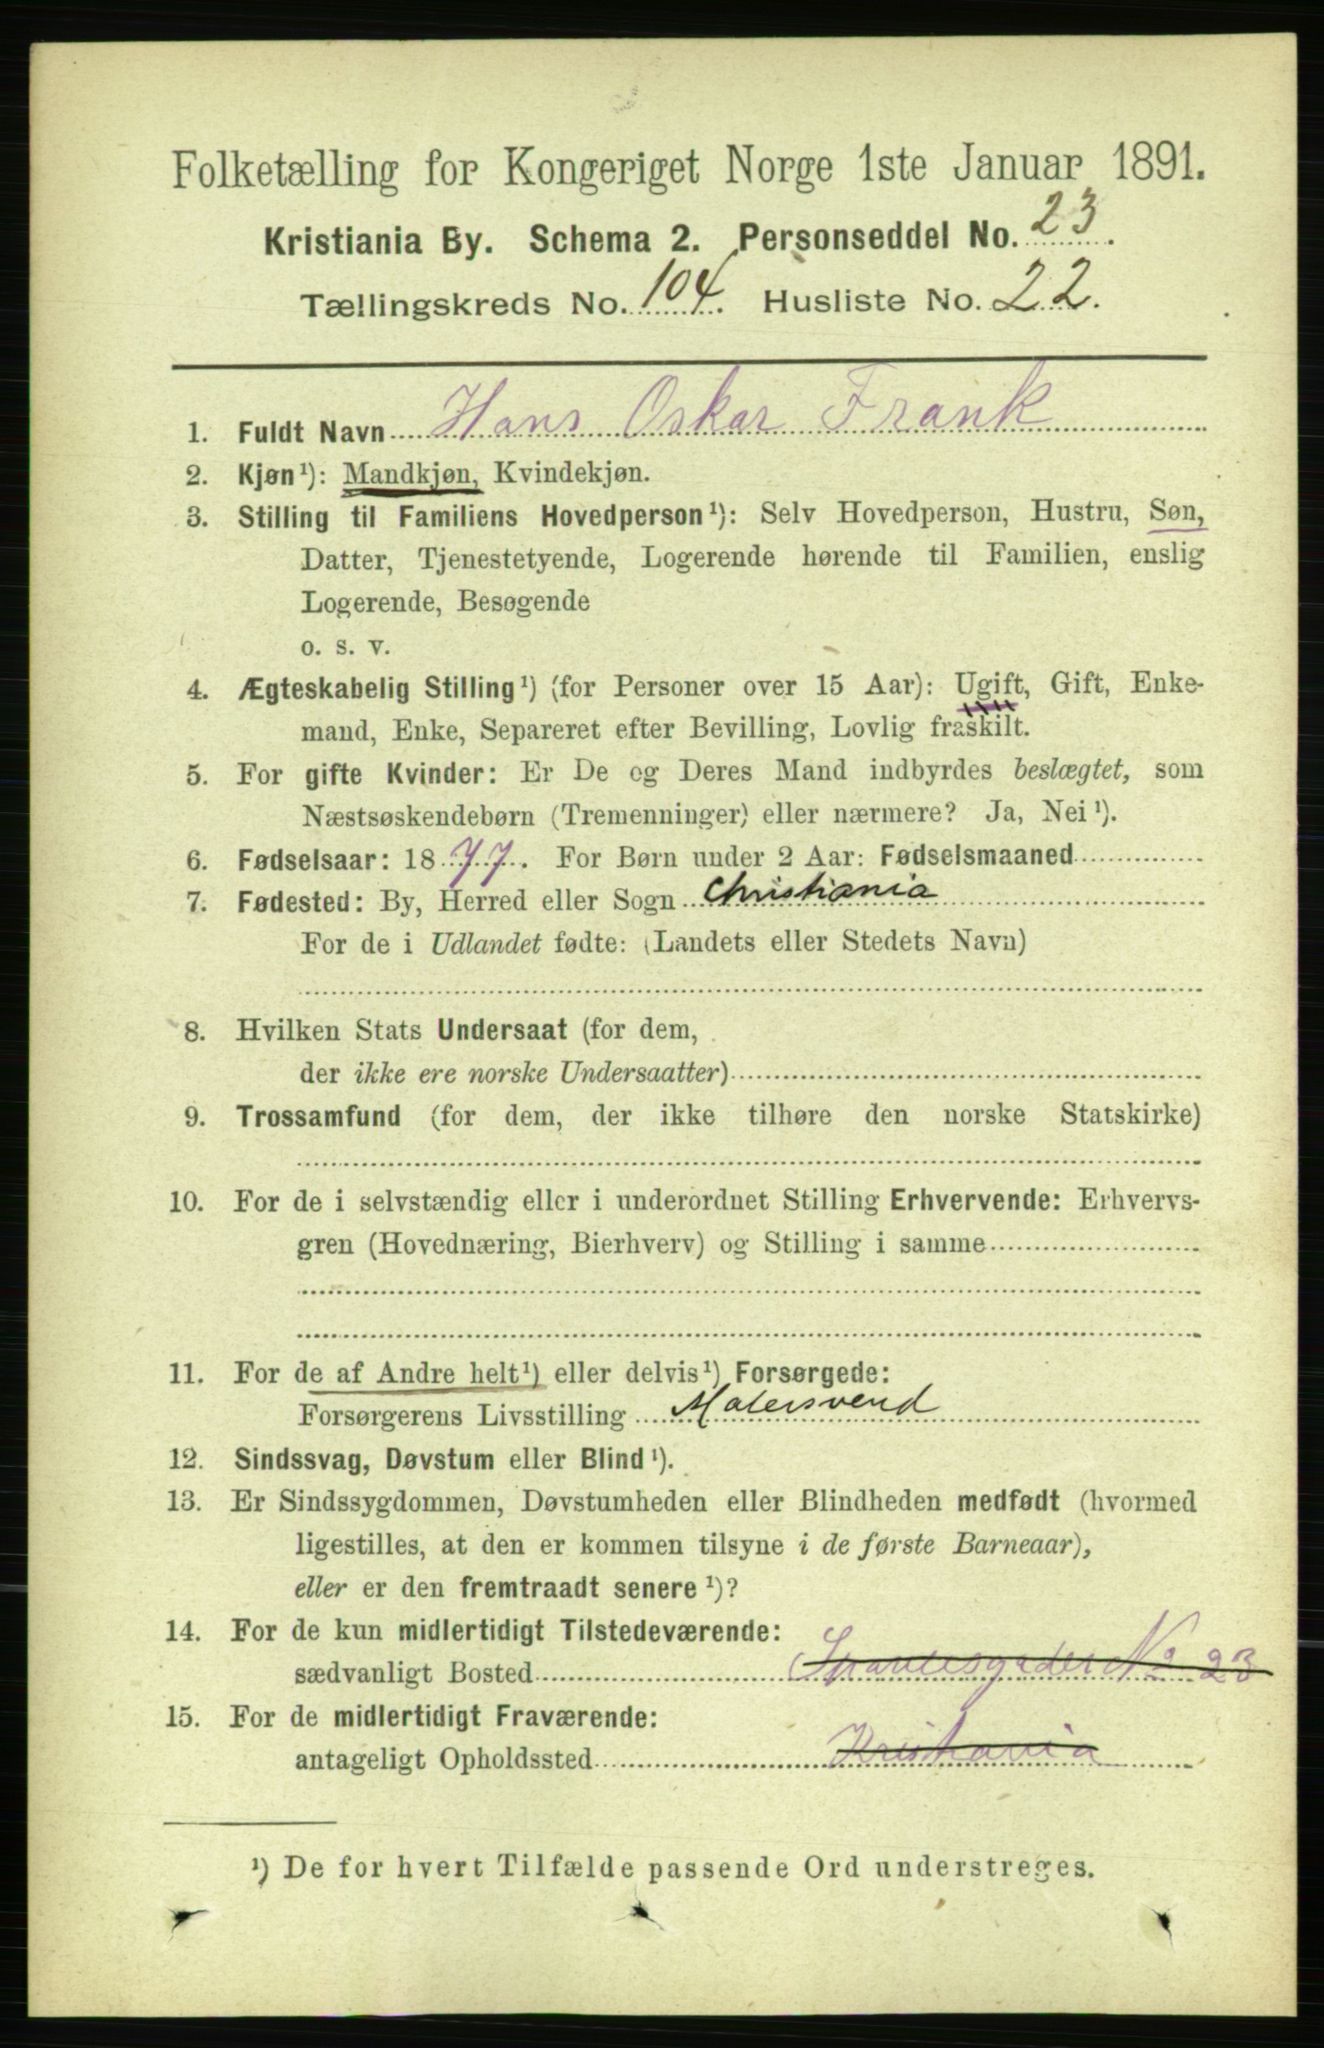 Folketælling for Kongeriget Norge 1ste Januar 1891.
Kristiania By. Schema 2. Personseddel No. 23.
Tællingskreds No. 104. Husliste No. 22.
1. Fuldt Navn Hans Oskar Frank
2. Kjøn¹): Mandkjøn, Kvindekjøn.
3. Stilling til Familiens Hovedperson¹): Selv Hovedperson, Hustru, Søn,
Datter, Tjenestetyende, Logerende hørende til Familien, enslig
Logerende, Besøgende
o. s. v.
4. Ægteskabelig Stilling¹) (for Personer over 15 Aar): Ugift, Gift, Enke-
mand, Enke, Separeret efter Bevilling, Lovlig fraskilt.
5. For gifte Kvinder: Er De og Deres Mand indbyrdes beslægtet, som
Næstsøskendebørn (Tremenninger) eller nærmere? Ja, Nei¹).
6. Fødselsaar: 1877. For Børn under 2 Aar: Fødselsmaaned
7. Fødested: By, Herred eller Sogn Christiania
For de i Udlandet fødte: (Landets eller Stedets Navn)
8. Hvilken Stats Undersaat (for dem,
der ikke ere norske Undersaatter)
9. Trossamfund (for dem, der ikke tilhøre den norske Statskirke)
10. For de i selvstændig eller i underordnet Stilling Erhvervende: Erhvervs-
gren (Hovednæring, Bierhverv) og Stilling i samme
11. For de af Andre helt¹) eller delvis¹) Forsørgede:
Forsørgerens Livsstilling Malersvend
12. Sindssvag, Døvstum eller Blind¹).
13. Er Sindssygdommen, Døvstumheden eller Blindheden medfødt (hvormed
ligestilles, at den er kommen tilsyne i de første Barneaar),
eller er den fremtraadt senere¹)?
14. For de kun midlertidigt Tilstedeværende:
sædvanligt Bosted No 23
15. For de midlertidigt Fraværende:
antageligt Opholdssted Kristiania
¹) De for hvert Tilfælde passende Ord understreges.